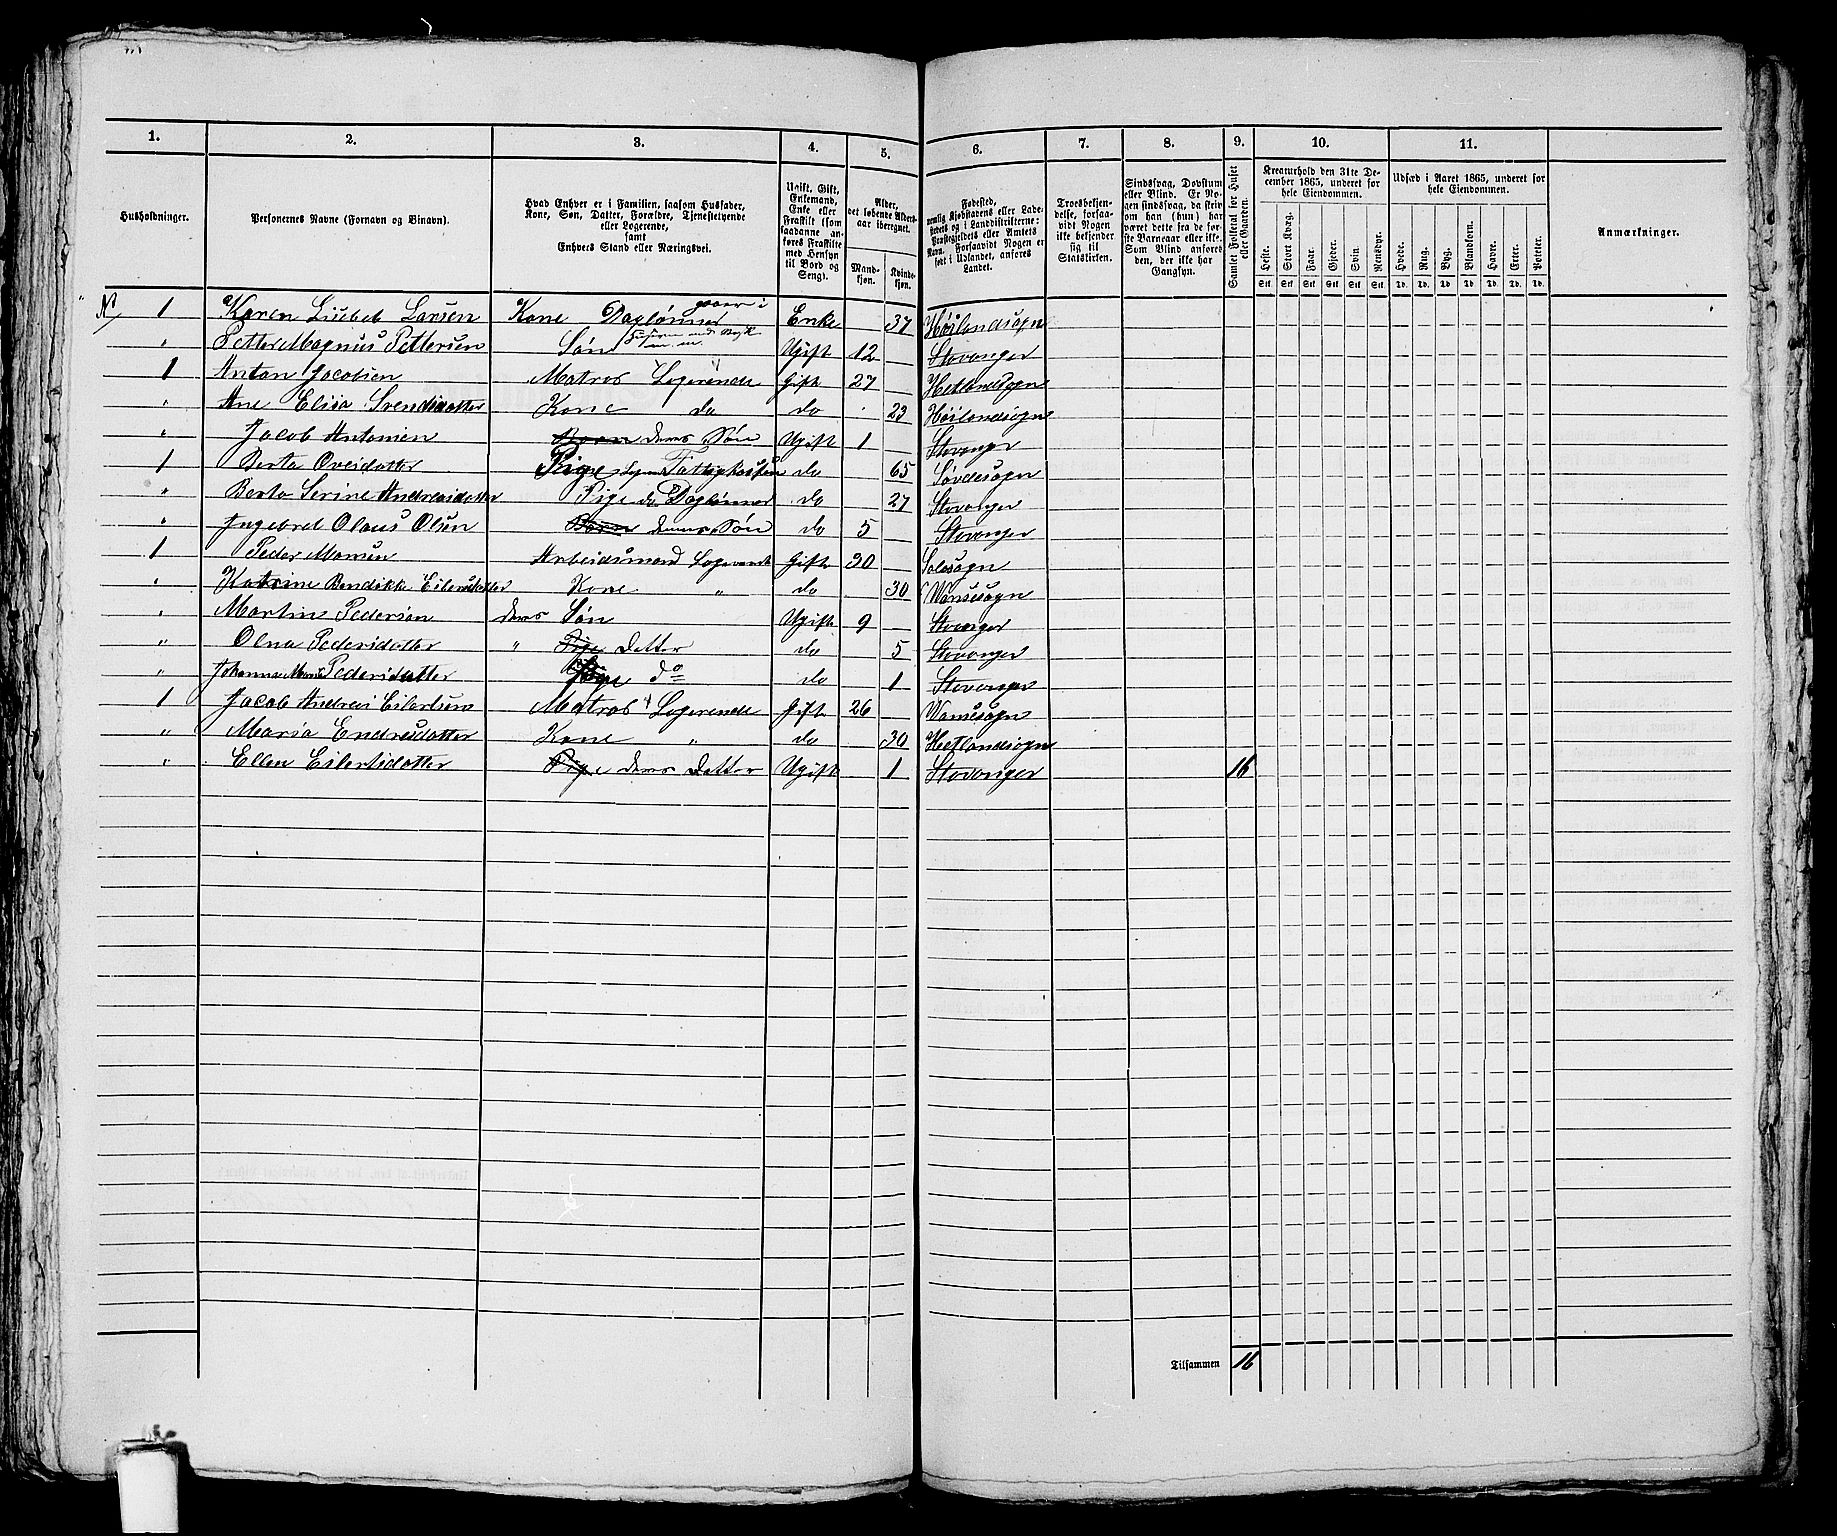 1. 2. 3. 4. 5. 6. 7. 8. 9. 10. 11.
Husholdninger.
Personernes Navne (Fornavn og Binavn).
Hvad Enhver er i Familien, saasom Husfader,
Kone, Søn, Datter, Forældre, Tjenestetyende
eller Logerende,
samt
Enhvers Stand eller Næringsvei.
Ugift, Gift,
Enkemand,
Enke eller
Fraskilt (som
saadanne an-
føres Fraskilte
med Hensyn
til Bord og
Seng).
Alder,
det løbende Alders-
aar iberegnet.
Mand-
kjøn.
Kvinde-
kjøn.
Fødested,
nemlig Kjøbstadens eller Lade-
stedets og i Landdistrikterne:
Præstegjeldets eller Amtets
Navn. Forsaavidt Nogen er
født i Udlandet, anføres
Landet.
Troesbekjen-
delse, forsaa-
vidt Nogen
ikke bekjender
sig til
Statskirken.
Sindssvag, Døvstum
eller Blind. Er No-
gen sindssvag, da skriv
om han (hun) har
været dette fra de før-
ste Barneaar eller ikke.
Som Blind anføres
den, der ikke har
Gangsyn.
Samlet Folketal for Huset
eller Gaarden.
Kreaturhold den 31te De-
cember 1865, underet for
hele Eiendommen.
Heste. Stort Kvæg. Faar. Gjeder. Svin. Rensdyr.
Stk. Stk. Stk. Stk. Stk. Stk.
Udsæd i Aaret 1865, underet for
hele Eiendommen.
Hvede. Rug. Byg. Blandkorn. Havre. Erter. Poteter.
Td. Td. Td. Td. Td. Td. Td.
Anmærkninger.
1 Karen Lisebet Larsen Kone Daglønner gaaer i Enke 37 Høilandsogn
" Petter Magnus Pettersen Søn Ugift 12 Stavanger
1 Anton Jacobsen Matros Logerende Gift 27 Hetlandsogn
" Ane Elisa Svendsdatter Kone do do 23 Høilandsogn
" Jacob Antonsen Barn deres Søn Ugift 1 Stavanger
1 Berta Oveidatter Pige Fattigkassen do 65 Søvdesogn
" Berta Serine Andreasdatter Pige do Daglønner do 27 Stavanger
" Ingebret Olaus Olsen Barn dennes Søn do 5 Stavanger
1 Peder Monsen Arbeidsmand Logerende Gift 30 Solesogn
" Katrine Bendikke Eilertsdatter Kone " do 30 Vansesogn
" Martin Pedersen deres Søn Ugift 9 Stavanger
" Olna Pedersdatter " Pige Datter do 5 Stavanger
" Johanna Marie Pedersdatter Pige do do 1 Stavanger
1 Jacob Andreas Eilertsen Matros Logerende Gift 26 Vansesogn
" Maria Endresdatter Kone " do 30 Hetlandsogn
" Ellen Eilertsdatter Pige deres Datter Ugift 1 Stavanger 16
Tilsammen 16